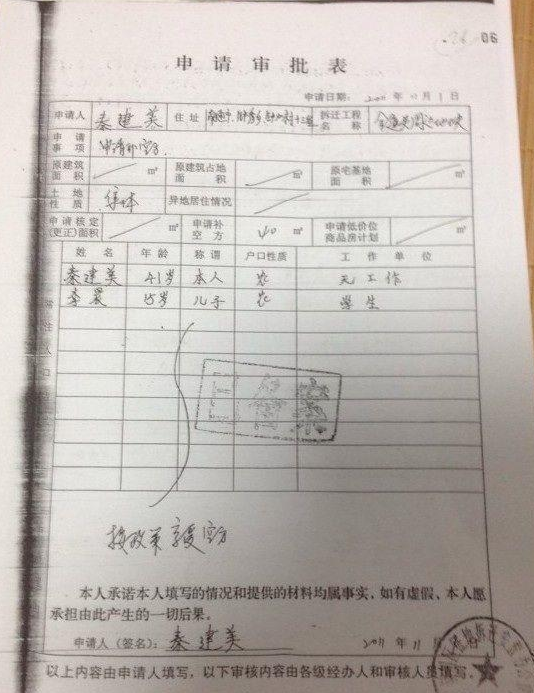 06
申请审批表
申请日期: 2011年11月1日
申请人 秦建美 住址 拆迁工程名称
申请事项 申请补空方
原建筑面积 m² 原建筑占地面积 m² 原宅基地面积 m²
土地性质 集体 异地居住情况
申请核定(更正)面积 m² 申请补空方 40 m² 申请低价位商品房计划 m²
姓名 年龄 称谓 户口性质 工作单位
秦建美 41岁 本人 农 无工作
李晨 15岁 儿子 农 学生
按政策享受空方
本人承诺本人填写的情况和提供的材料均属事实,如有虚假,本人愿
承担由此产生的一切后果。
申请人(签名): 秦建美 2011年11月
以上内容由申请人填写,以下审核内容由各级经办人和审核人员填写。